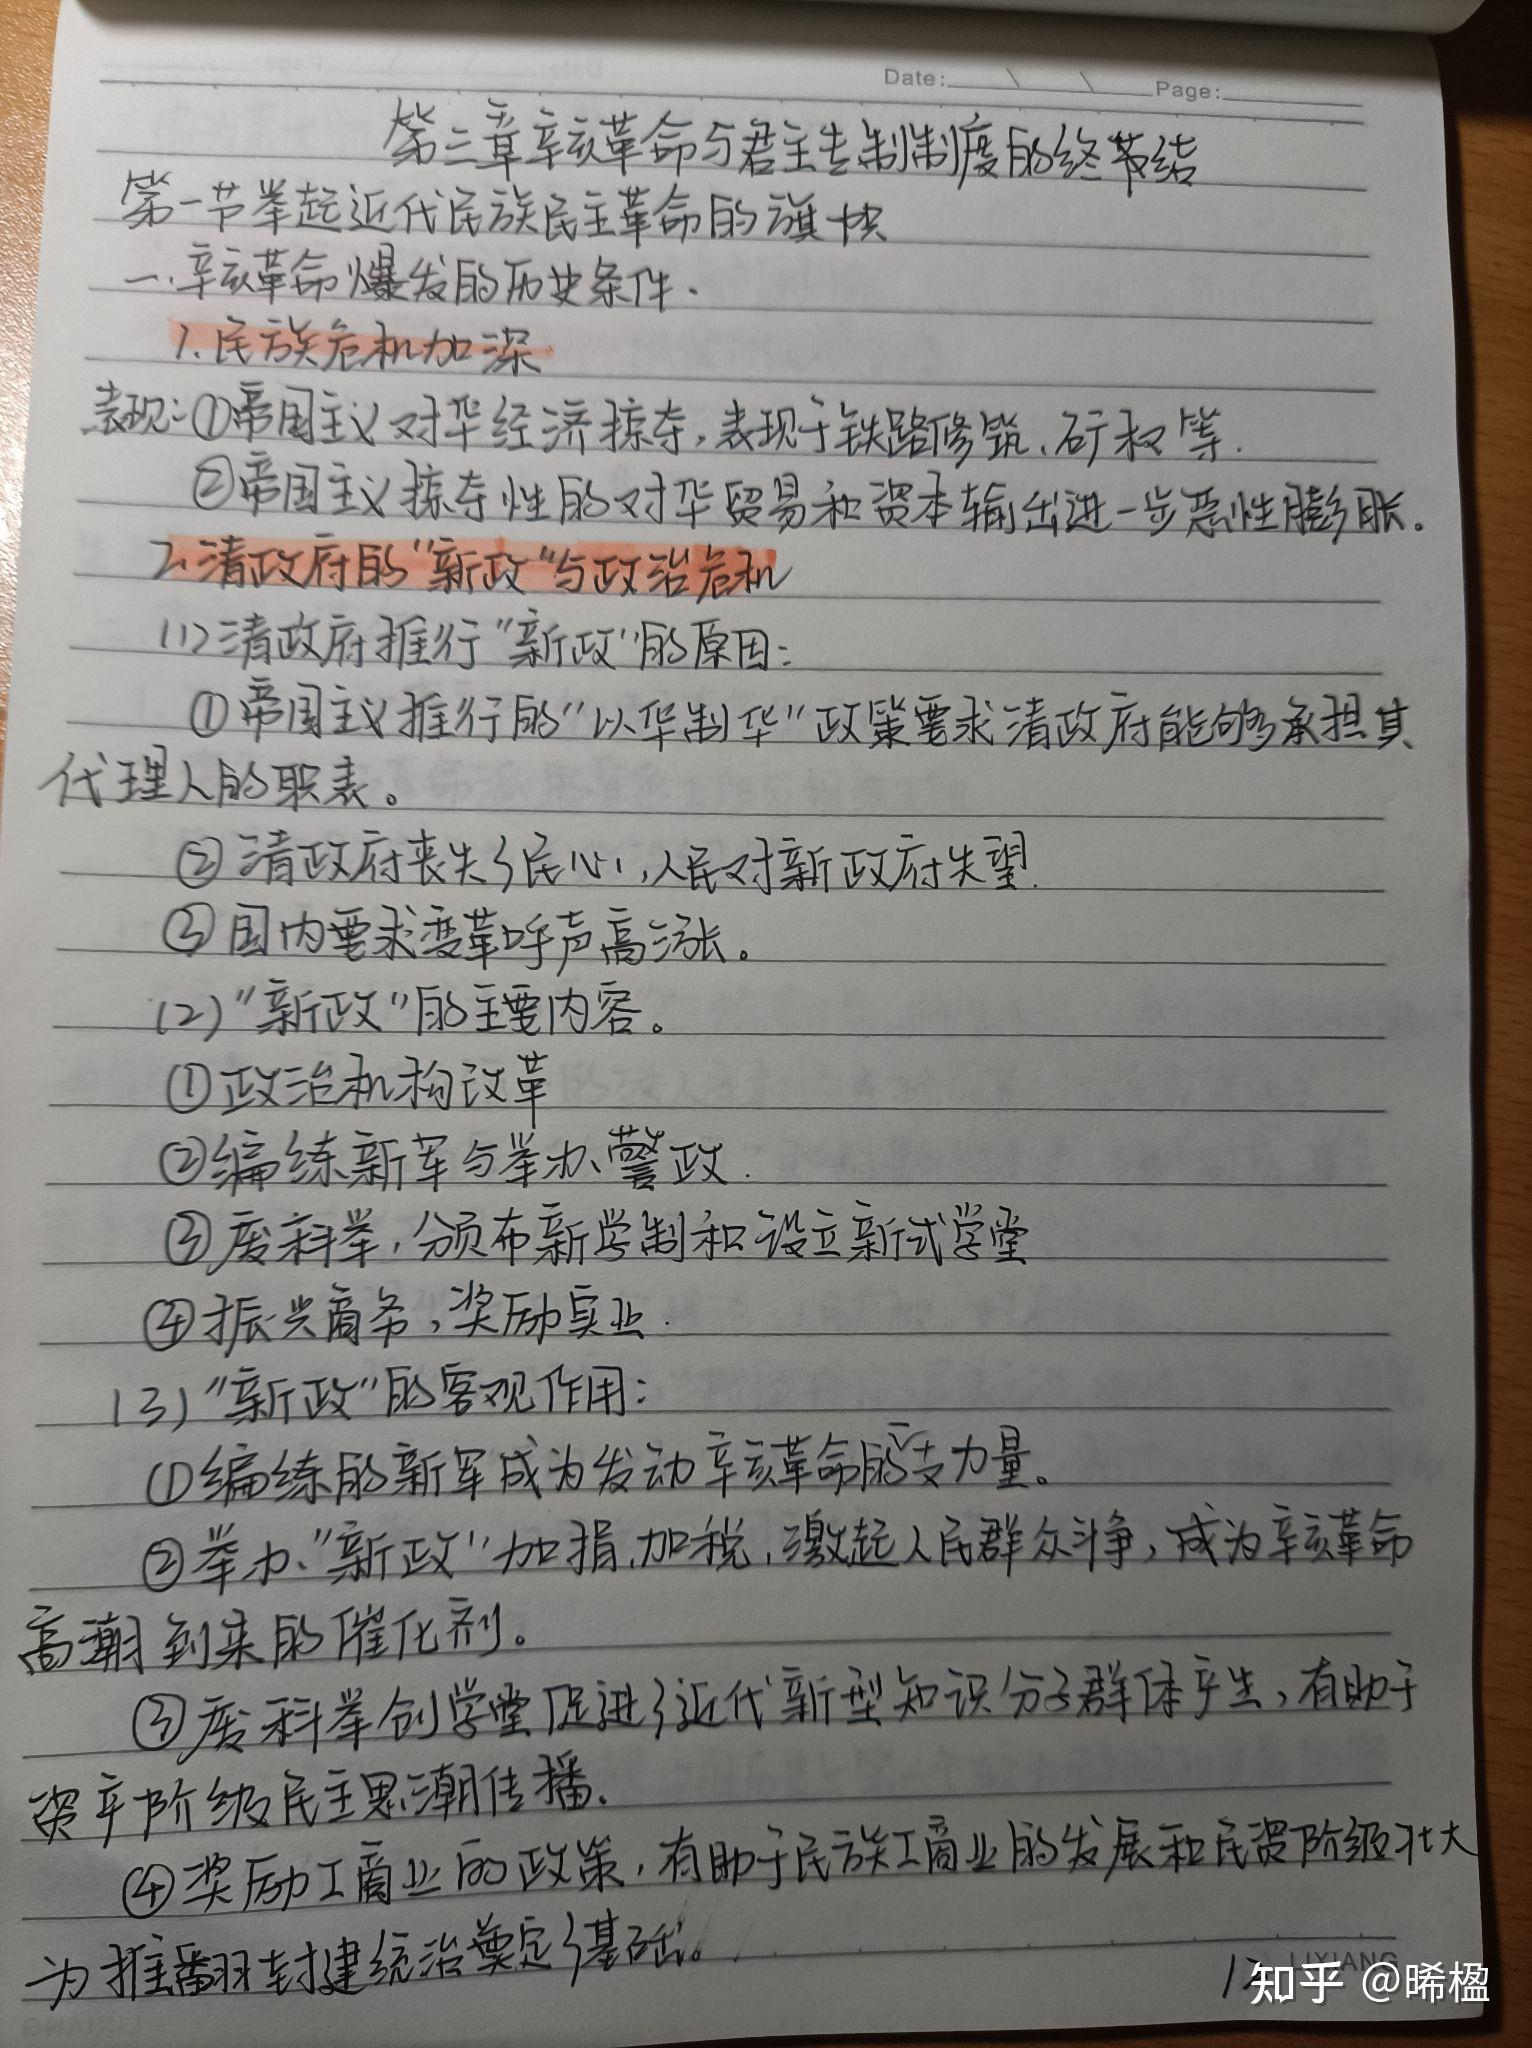 Date: Page:
第三章辛亥革命与君主专制制度的终结
第一节举起近代民族民主革命的旗帜
一.辛亥革命爆发的历史条件.
1.民族危机加深
表现:①帝国主义对华经济掠夺,表现于铁路修筑、矿权等.
②帝国主义掠夺性的对华贸易和资本输出进一步恶性膨胀.
2.清政府的"新政"与政治危机
(1)清政府推行"新政"的原因:
①帝国主义推行的"以华制华"政策要求清政府能够承担其
代理人的职责。
②清政府丧失了民心,人民对新政府失望.
③国内要求变革呼声高涨。
(2)"新政"的主要内容。
①政治机构改革
②编练新军与举办警政.
③废科举,颁布新学制和设立新式学堂
④振兴商务,奖励实业.
(3)"新政"的客观作用:
①编练的新军成为发动辛亥革命的支力量。
②举办"新政"加捐,加税,激起人民群众斗争,成为辛亥革命
高潮到来的催化剂。
③废科举创学堂促进了近代新型知识分子群体产生,有助于
资产阶级民主思潮传播.
④奖励工商业的政策,有助于民族工商业的发展和民资阶级壮大
为推翻封建统治奠定了基础。
LIXIANG
知乎 @晞楹